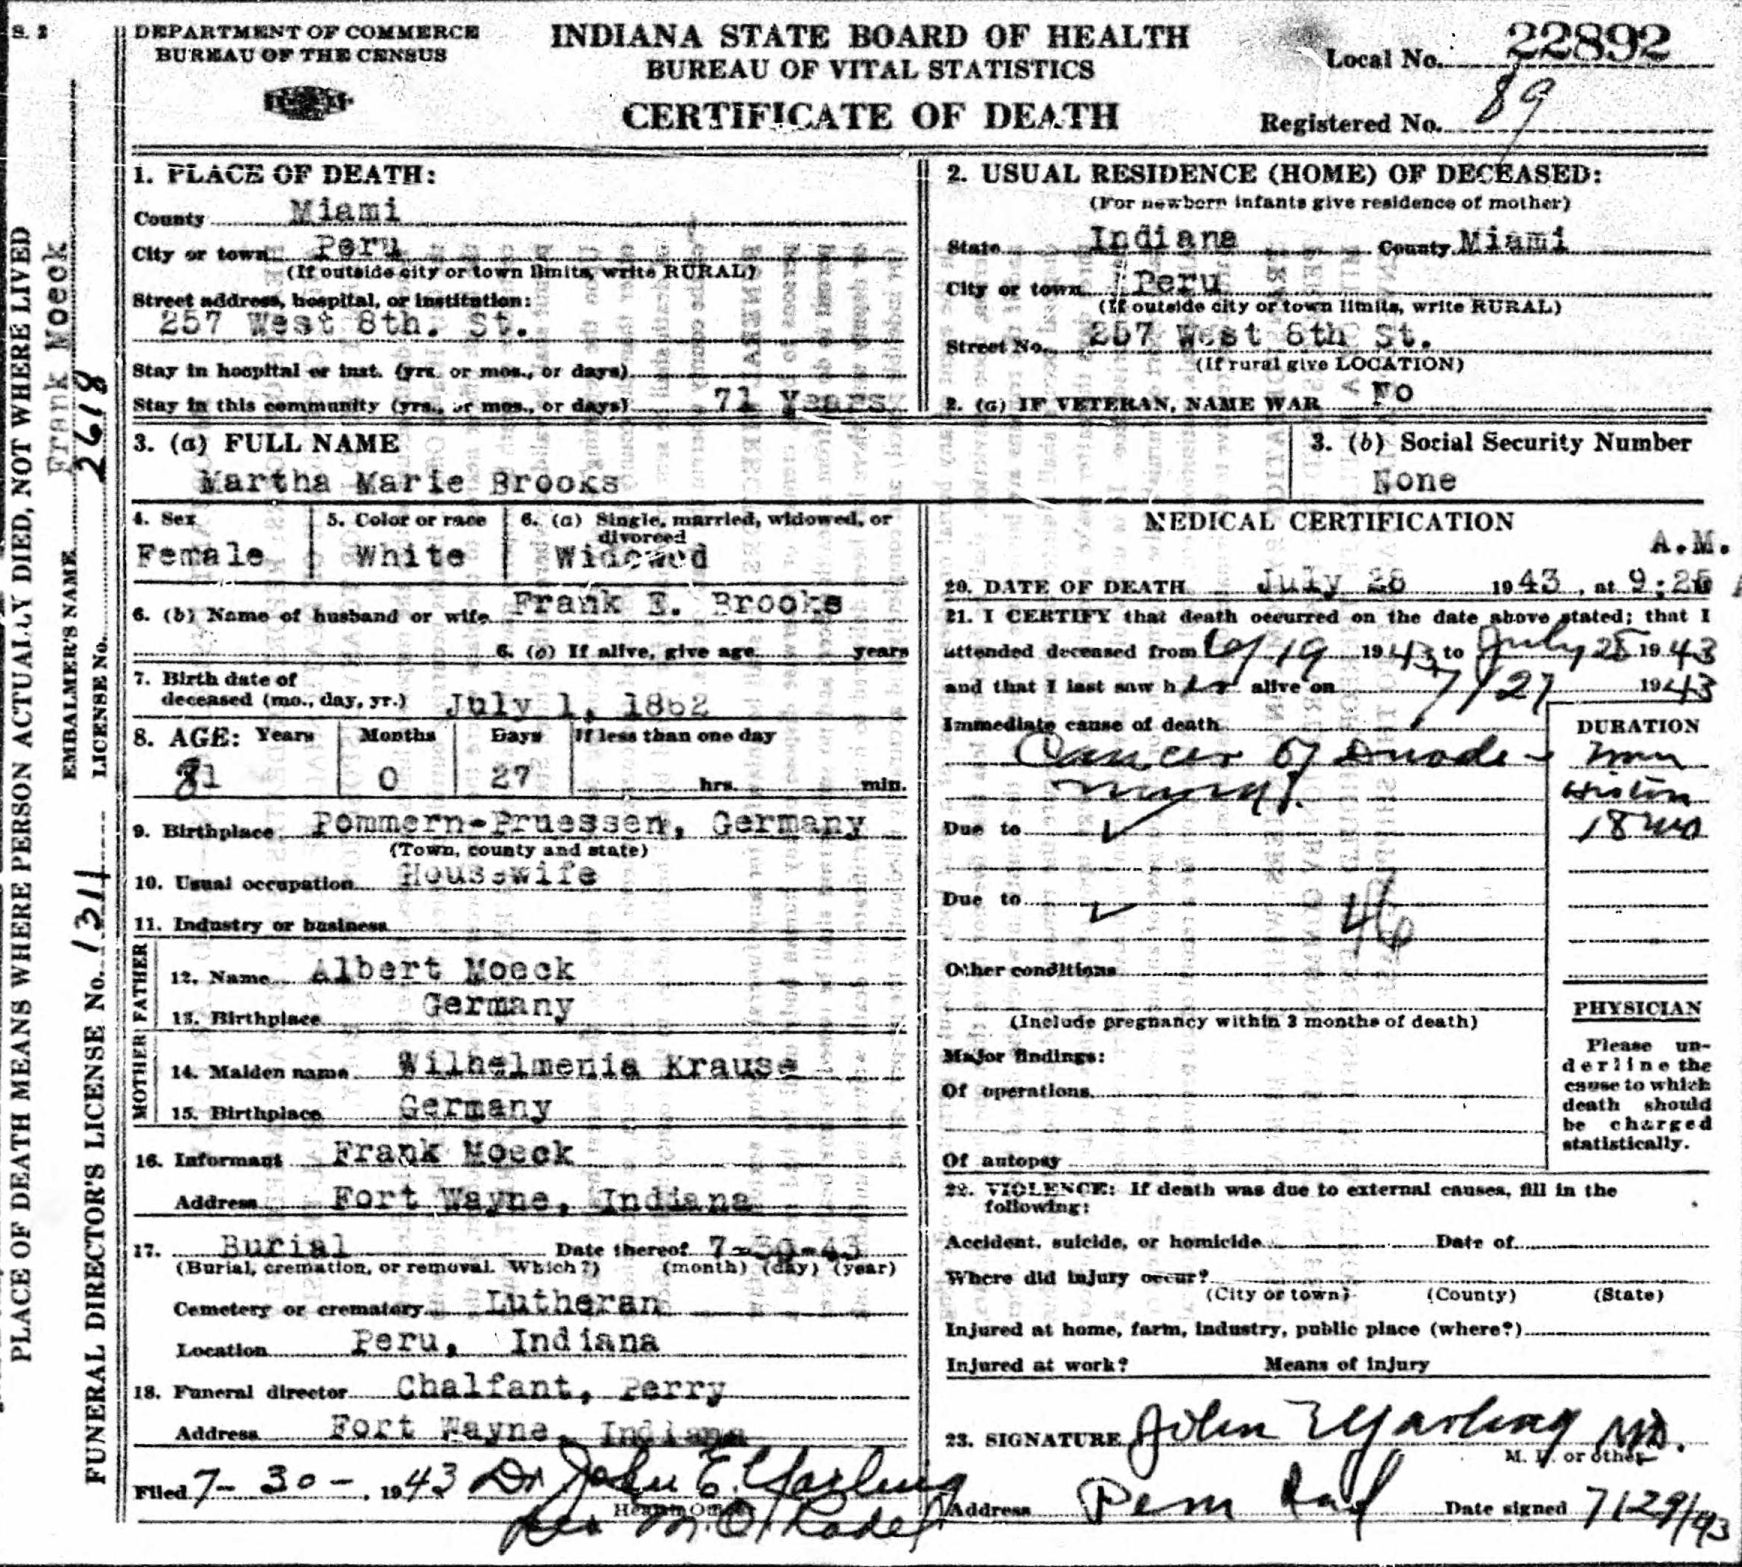 S. 2
DEPARTMENT OF COMMERCE
BUREAU OF THE CENSUS
INDIANA STATE BOARD OF HEALTH
BUREAU OF VITAL STATISTICS
CERTIFICATE OF DEATH
Local No. 22892
Registered No. 89
PLACE OF DEATH MEANS WHERE PERSON ACTUALLY DIED, NOT WHERE LIVED
EMBALMER'S NAME Frank Moeck
LICENSE No. 2618
FUNERAL DIRECTOR'S LICENSE No. 1311
1. PLACE OF DEATH:
County Miami
City or town Peru
(If outside city or town limits, write RURAL)
Street address, hospital, or institution:
257 West 8th. St.
Stay in hospital or inst. (yrs. or mos., or days)
Stay in this community (yrs., or mos., or days) 71 Years
2. USUAL RESIDENCE (HOME) OF DECEASED:
(For newborn infants give residence of mother)
State Indiana County Miami
City or town Peru
(If outside city or town limits, write RURAL)
Street No. 257 West 8th St.
(If rural give LOCATION)
2. (a) IF VETERAN, NAME WAR No
3. (a) FULL NAME
Martha Marie Brooks
3. (b) Social Security Number
None
4. Sex
Female
5. Color or race
White
6. (a) Single, married, widowed, or divorced
Widowed
6. (b) Name of husband or wife Frank E. Brooks
6. (c) If alive, give age years
7. Birth date of
deceased (mo., day, yr.) July 1, 1862
8. AGE: Years Months Days If less than one day
81 0 27 hrs. min.
9. Birthplace Pommern-Pruessen, Germany
(Town, county and state)
10. Usual occupation Housewife
11. Industry or business
FATHER
12. Name Albert Moeck
13. Birthplace Germany
MOTHER
14. Maiden name Wilhelmenia Krause
15. Birthplace Germany
16. Informant Frank Moeck
Address Fort Wayne, Indiana
17. Burial Date thereof 7-30-43
(Burial, cremation, or removal. Which?) (month) (day) (year)
Cemetery or crematory Lutheran
Location Peru, Indiana
18. Funeral director Chalfant, Perry
Address Fort Wayne, Indiana
Filed 7-30-, 1943 Dr John E. Yarling
Health Officer
MEDICAL CERTIFICATION
A.M.
20. DATE OF DEATH July 28 1943, at 9:25
21. I CERTIFY that death occurred on the date above stated; that I
attended deceased from 19 1943 to July 28 1943
and that I last saw her alive on 7/27 1943
Immediate cause of death DURATION
Cancer of Duode-
18 mo
Due to
Due to
46
Other conditions
(Include pregnancy within 3 months of death)
Major findings:
Of operations
Of autopsy
PHYSICIAN
Please un-
derline the
cause to which
death should
be charged
statistically.
22. VIOLENCE: If death was due to external causes, fill in the
following:
Accident, suicide, or homicide Date of
Where did injury occur?
(City or town) (County) (State)
Injured at home, farm, industry, public place (where?)
Injured at work? Means of injury
23. SIGNATURE John E Yarling MD.
M. D. or other
Address Peru Ind Date signed 7/29/43